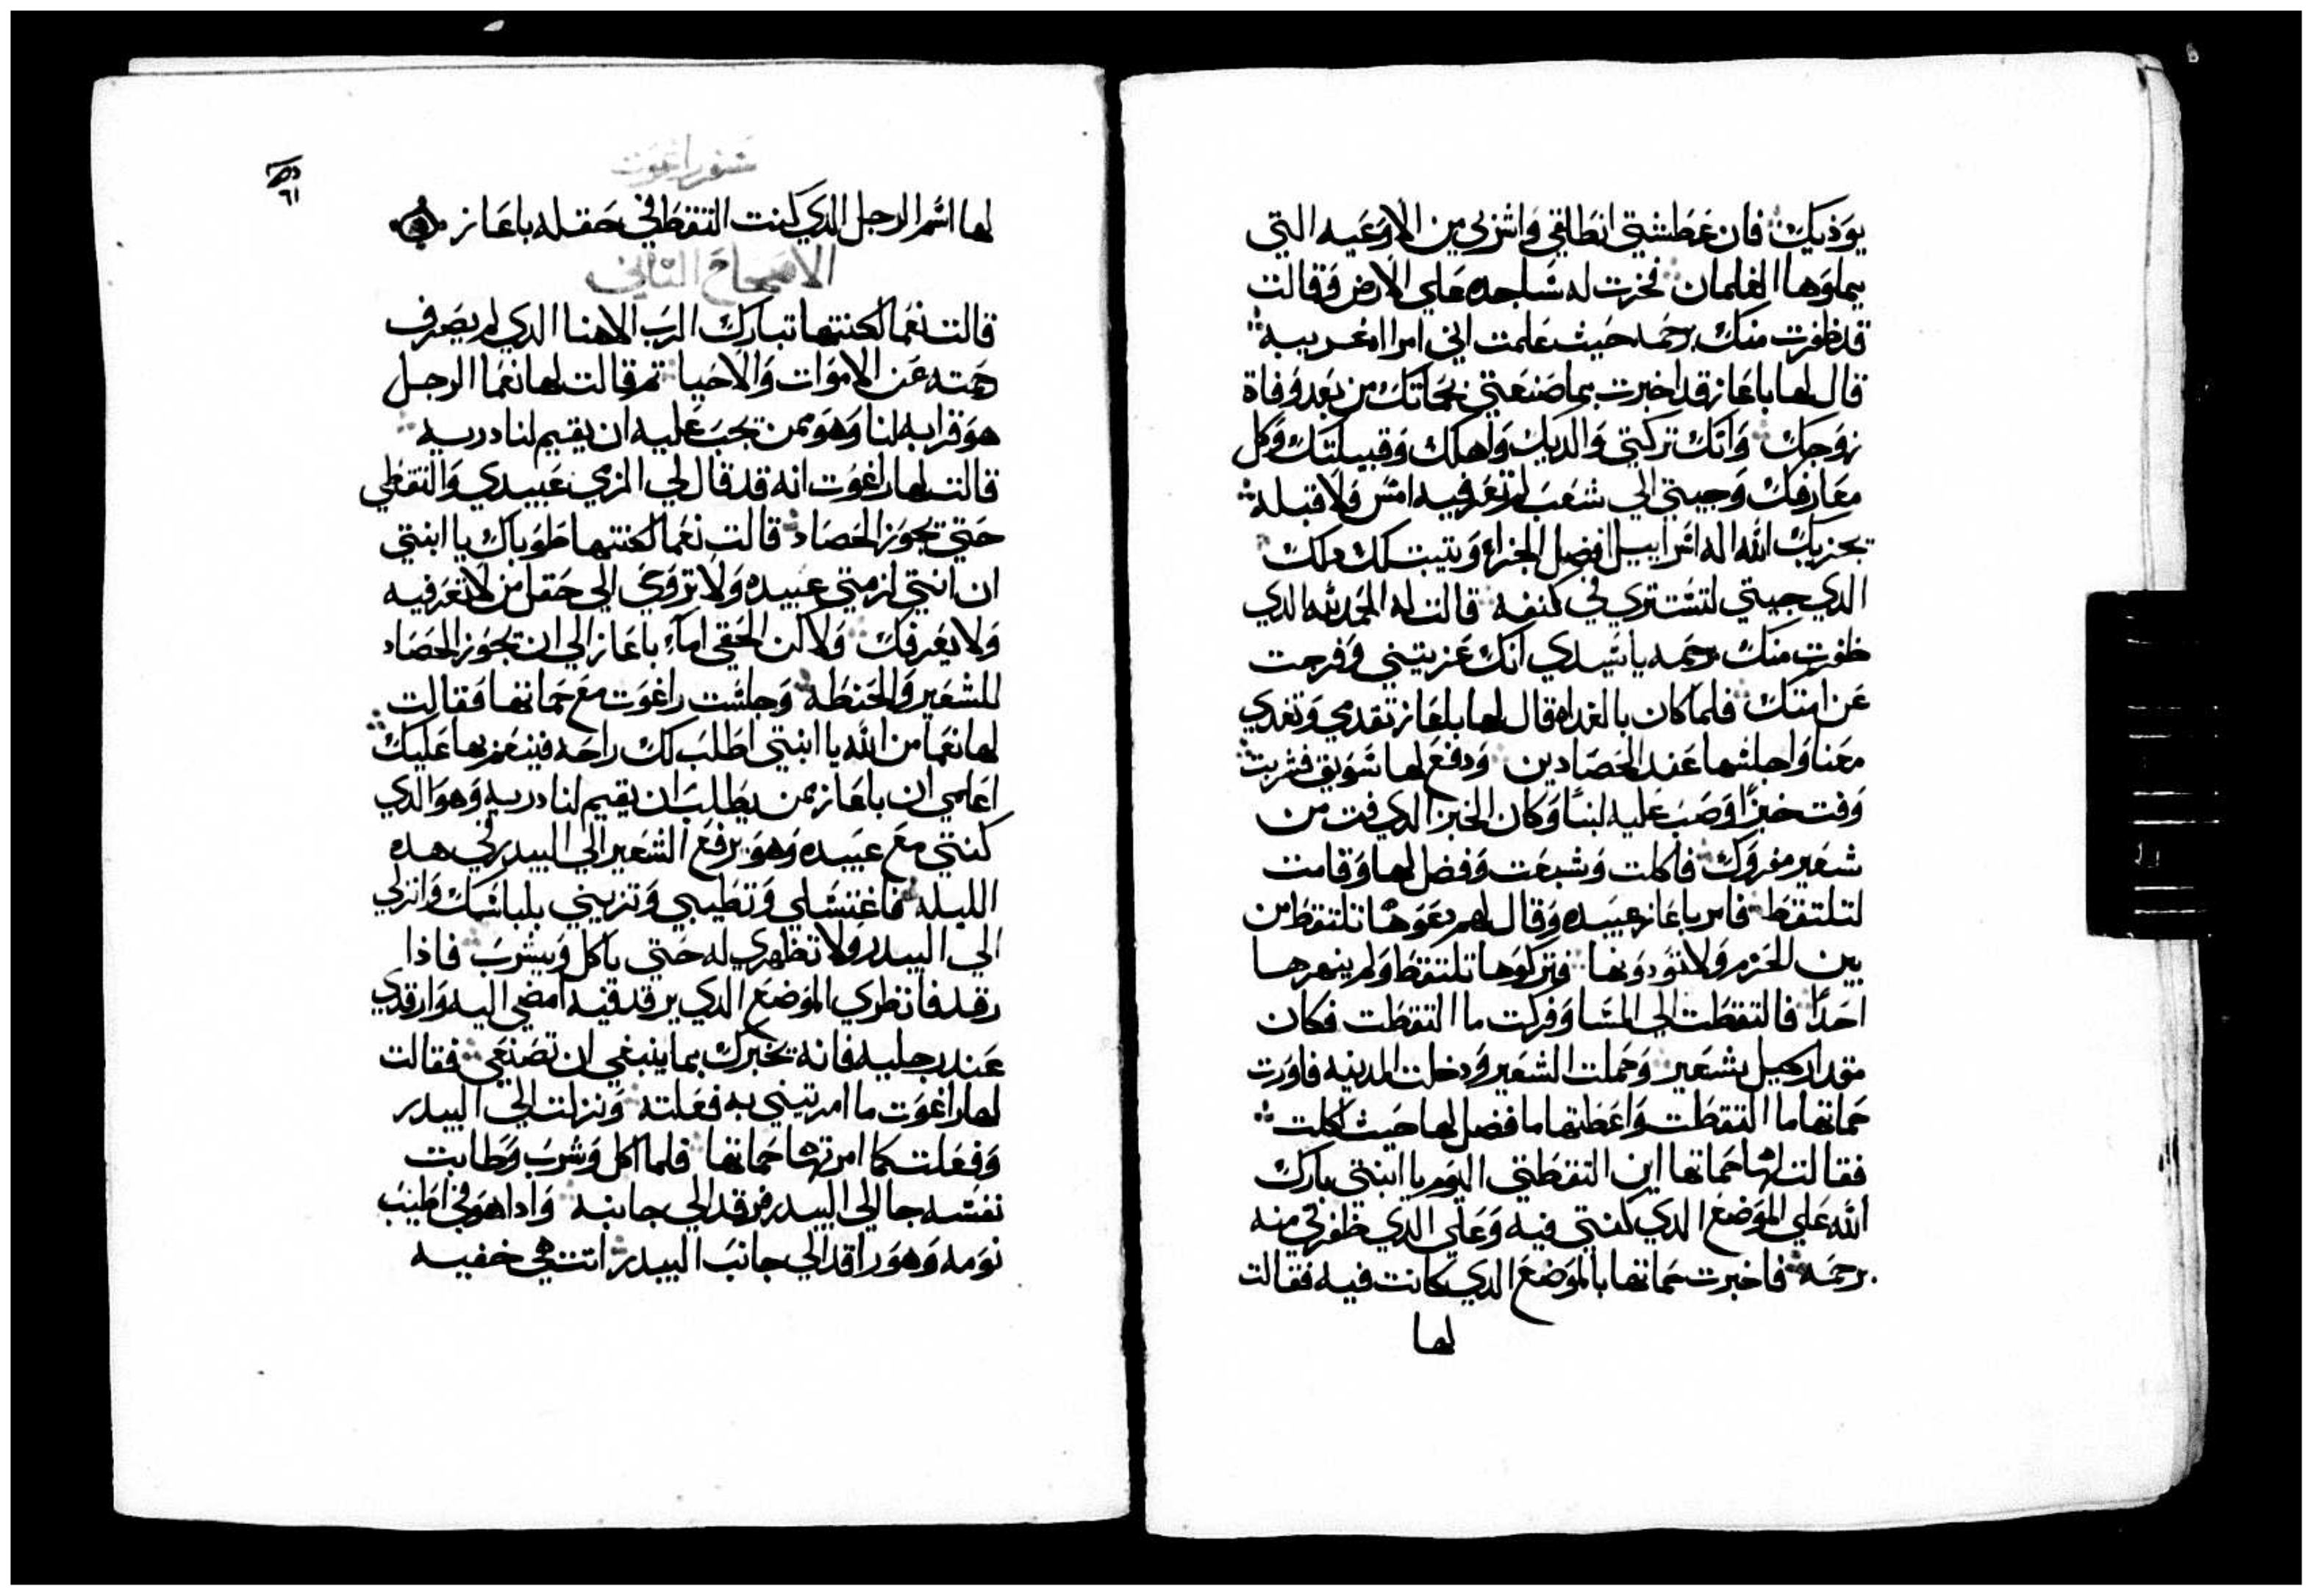 يوذيك فان عطشتي انطلقي واشربي من الاوعيه التي
يملوها الغلمان فخرت له ساجده علي الارض وقالت
قد ظفرت منك برحمه حيث علمت اني امراه غريبه
قال لها باعاز قد اخبرت بما صنعتي بحماتك من بعد وفاة
زوجك وانك تركتي والديك واهلك وقبيلتك وكل
معارفك وجيتي الي شعب لم تعرفيه امس ولا قبله
يجزيك الله اله اسراييل افضل الجزاء ويثبت لك ملك
الدي جيتي لتستتري في كنفه قالت له الحمد لله الدي
ظفرت منك برحمه يا سيدي انك عزيتني وفرجت
عن امتك فلما كان بالغداه قال لها باعاز تقدمي وتغدي
معنا واجلسها عند الحصادين ودفع لها سويق فشربت
وفت خبزًا وصب عليه لبنًا وكان الخبز الدي فت من
شعير مفروك فاكلت وشبعت وفضل لها وقامت
لتلتقط فامر باعاز عبيده وقال لهم دعوها تلتقط من
بين الحزم ولا تودونها فتركوها تلتقط ولم ينهرها
احدًا فالتقطت الي المسا وفركت ما التقطت فكان
مقدار كيل شعير وحملت الشعير ودخلت المدينه فاورت
حماتها ما التقطت واعطتها ما فضل لها حيث اكلت
فقالت لها حماتها اين التقطتي اليوم يا ابنتي بارك
الله علي الموضع الدي كنتي فيه وعلي الدي ظفرتي منه
برحمه فاخبرت حماتها بالموضع الدي كانت فيه فقالت
لها
سفر راغوت
٦١
لها اسم الرجل الدي كنت التقط في حقله باعاز
الاصحاح التاني
قالت نعما لكنتها تبارك الرب الاهنا الدي لم يصرف
رحمته عن الاموات والاحيا ثم قالت لها نعما الرجل
هو قرابه لنا وهو ممن يجب عليه ان يقيم لنا دريه
قالت لها راغوت انه قد قال لي الزمي عبيدي والتقطي
حتي يجوز الحصاد قالت نعما لكنتها طوباك يا ابنتي
ان انتي لزمتي عبيده ولا تروحي الي حقل من لا تعرفيه
ولا يعرفك ولاكن الحقي اماء باعاز الي ان يجوز الحصاد
للشعير والحنطه وجلست راغوت مع حماتها فقالت
لها نعما من الله يا ابنتي اطلب لك راحه فينعم بها عليك
اعلمي ان باعاز ممن يطلب ان يقيم لنا دريه وهو الدي
كنتي مع عبيده وهو يرفع الشعير الي البيدر في هده
الليله فاغتسلي وتطيبي وتزيني بلباسك وانزلي
الي البيدر ولا تظهري له حتي ياكل ويشرب فاذا
رقد فانظري الموضع الدي يرقد فيه امضي اليه وارقدي
عند رجليه فانه يخبرك بما ينبغي ان تصنعي فقالت
لها راغوت ما امرتيني به فعلته ونزلت الي البيدر
وفعلت كما امرتها حماتها فلما اكل وشرب وطابت
نفسه جا الي البيدر فرقد الي جانبه وادا هو في اطيب
نومه وهو راقد الي جانب البيدر اتت هي خفيه